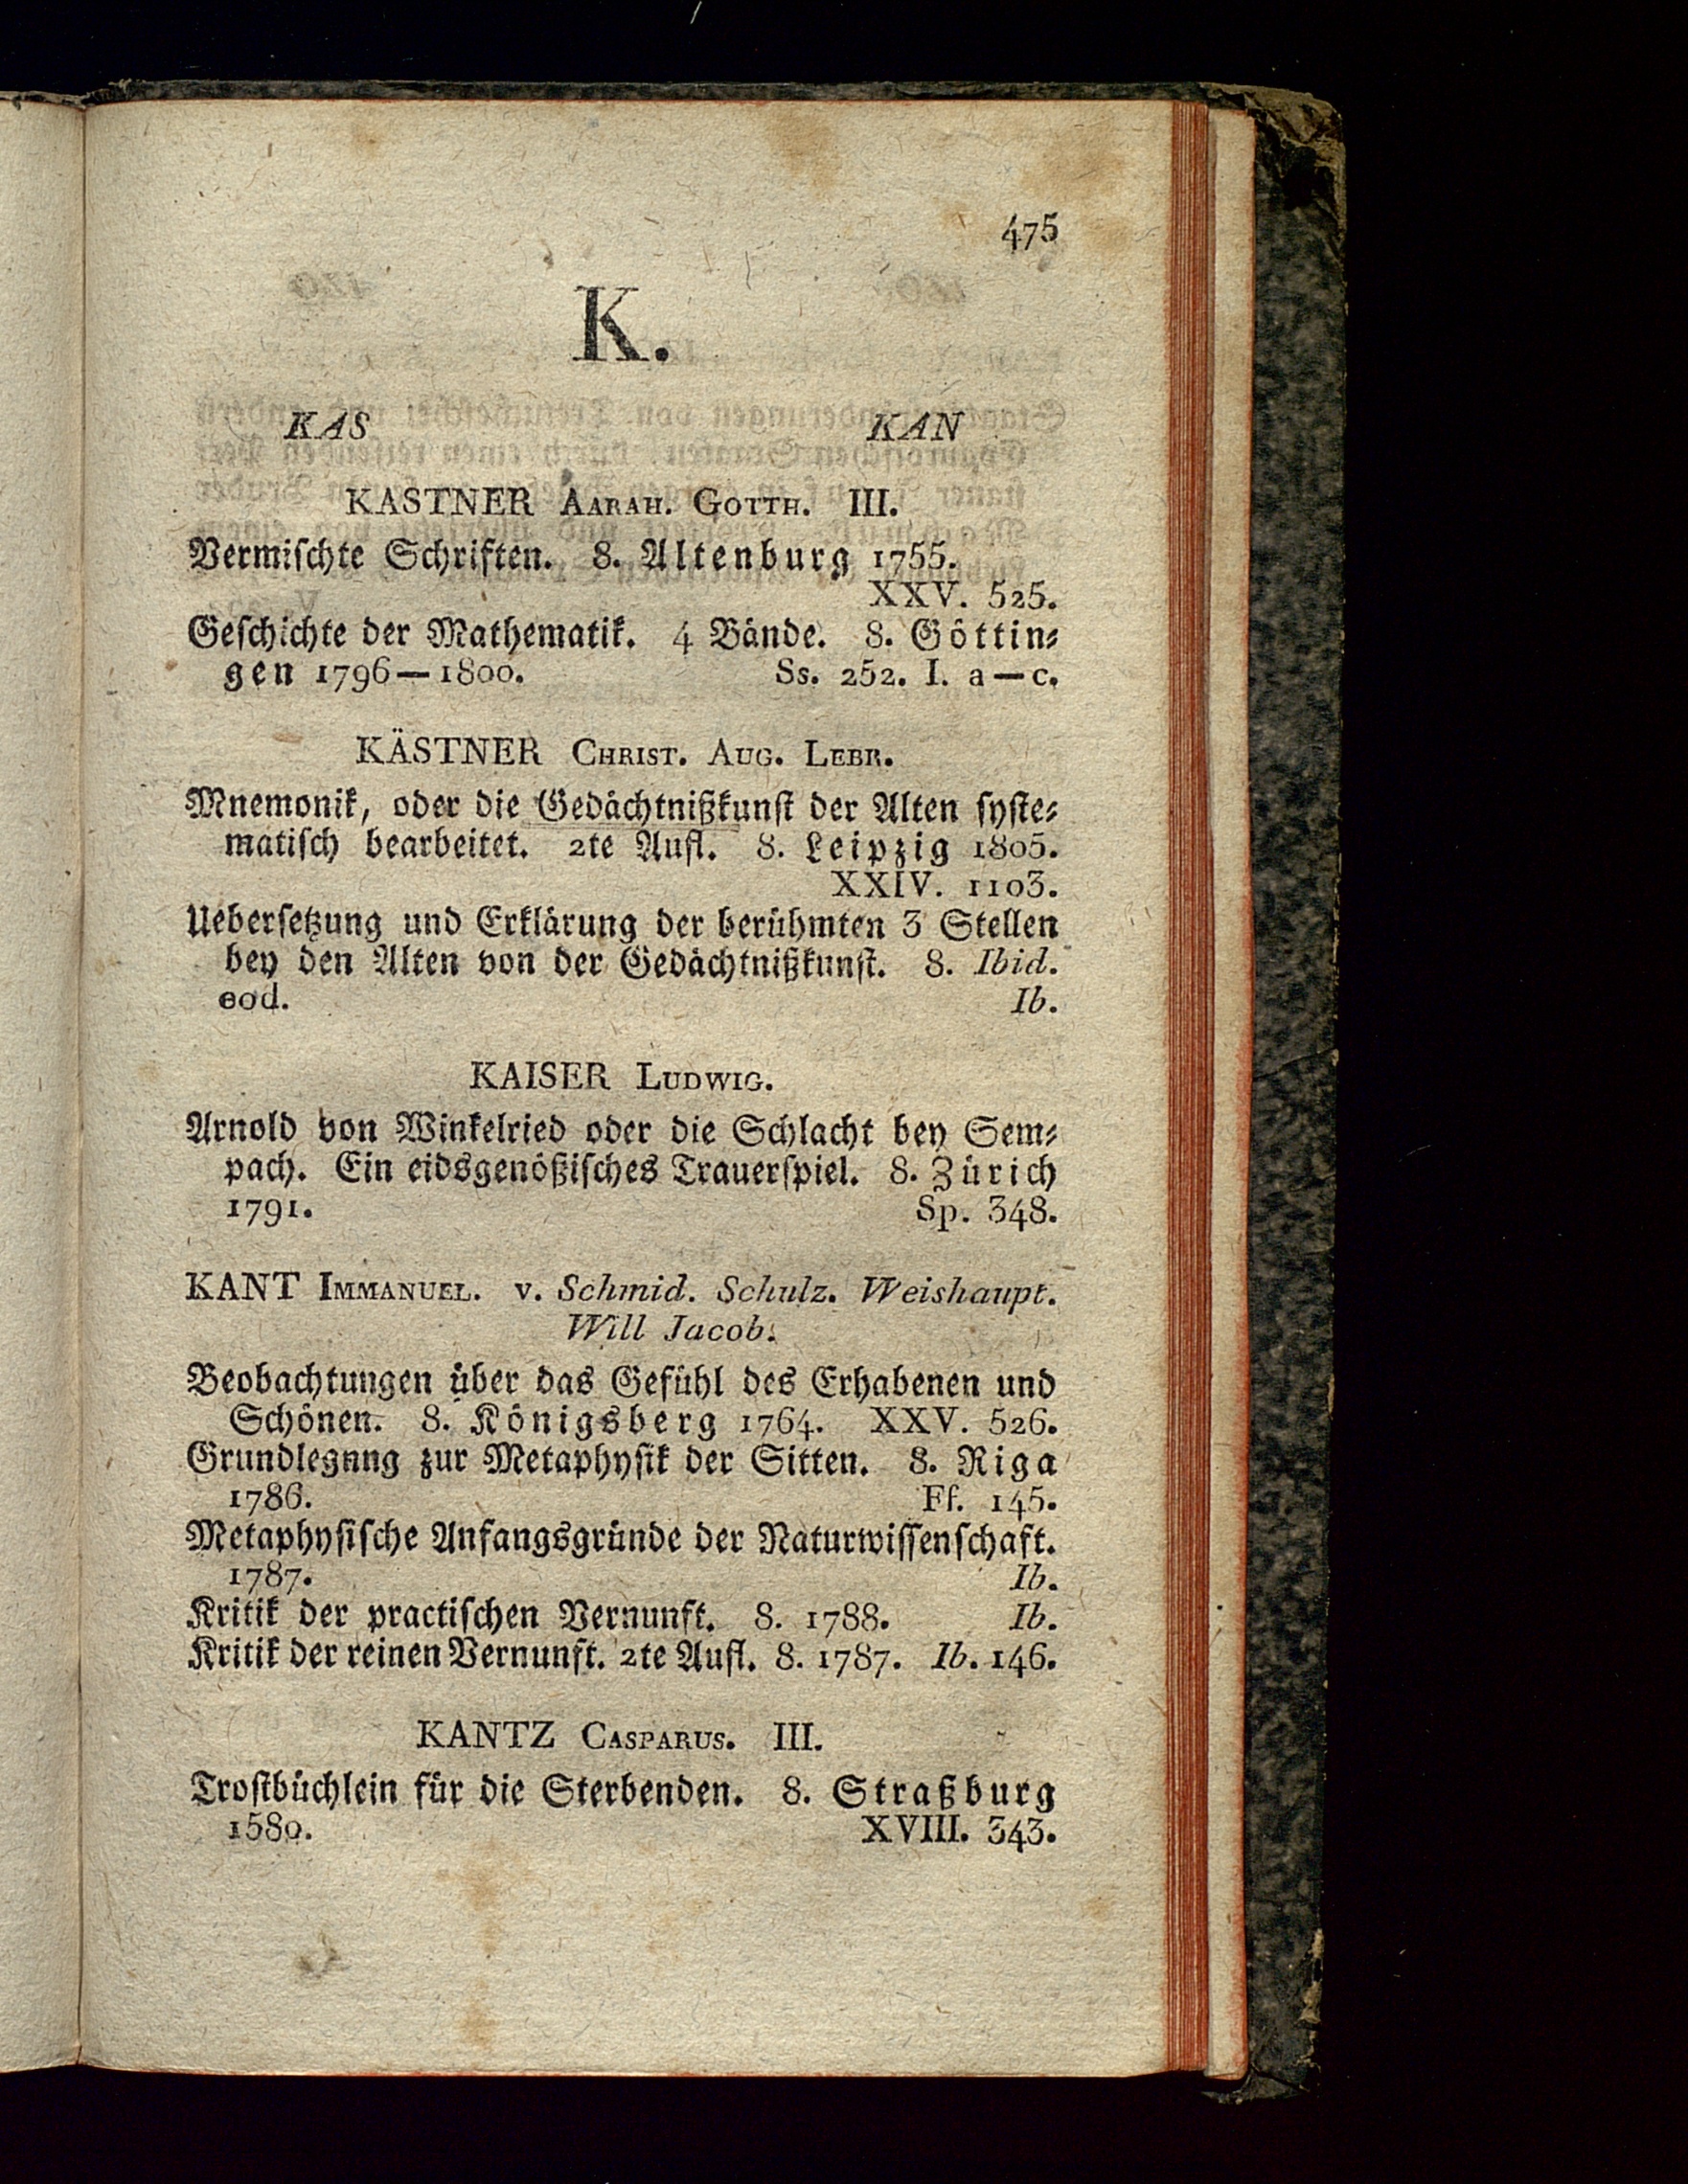 475
K.
KAS KAN
KASTNER AARAH. GOTTH. III.
Vermischte Schriften. 8. Altenburg 1755.
XXV. 525.
Geschichte der Mathematik. 4 Bände. 8. Göttin⸗
gen 1796—1800. Ss. 252. I. a—c.
KÄSTNER CHRIST. AUG. LEBR.
Mnemonik, oder die Gedächtnißkunst der Alten syste⸗
matisch bearbeitet. 2te Aufl. 8. Leipzig 1805.
XXIV. 1103.
Uebersetzung und Erklärung der berühmten 3 Stellen
bey den Alten von der Gedächtnißkunst. 8. Ibid.
eod. Ib.
KAISER LUDWIG.
Arnold von Winkelried oder die Schlacht bey Sem⸗
pach. Ein eidsgenößisches Trauerspiel. 8. Zürich
1791. Sp. 348.
KANT IMMANUEL. v. Schmid. Schulz. Weishaupt.
Will Jacob.
Beobachtungen über das Gefühl des Erhabenen und
Schönen. 8. Königsberg 1764. XXV. 526.
Grundlegnng zur Metaphysik der Sitten. 8. Riga
1786. Ff. 145.
Metaphysische Anfangsgründe der Naturwissenschaft.
1787. Ib.
Kritik der practischen Vernunft. 8. 1788. Ib.
Kritik der reinen Vernunft. 2te Aufl. 8. 1787. Ib. 146.
KANTZ CASPARUS. III.
Trostbüchlein für die Sterbenden. 8. Straßburg
1580. XVIII. 343.